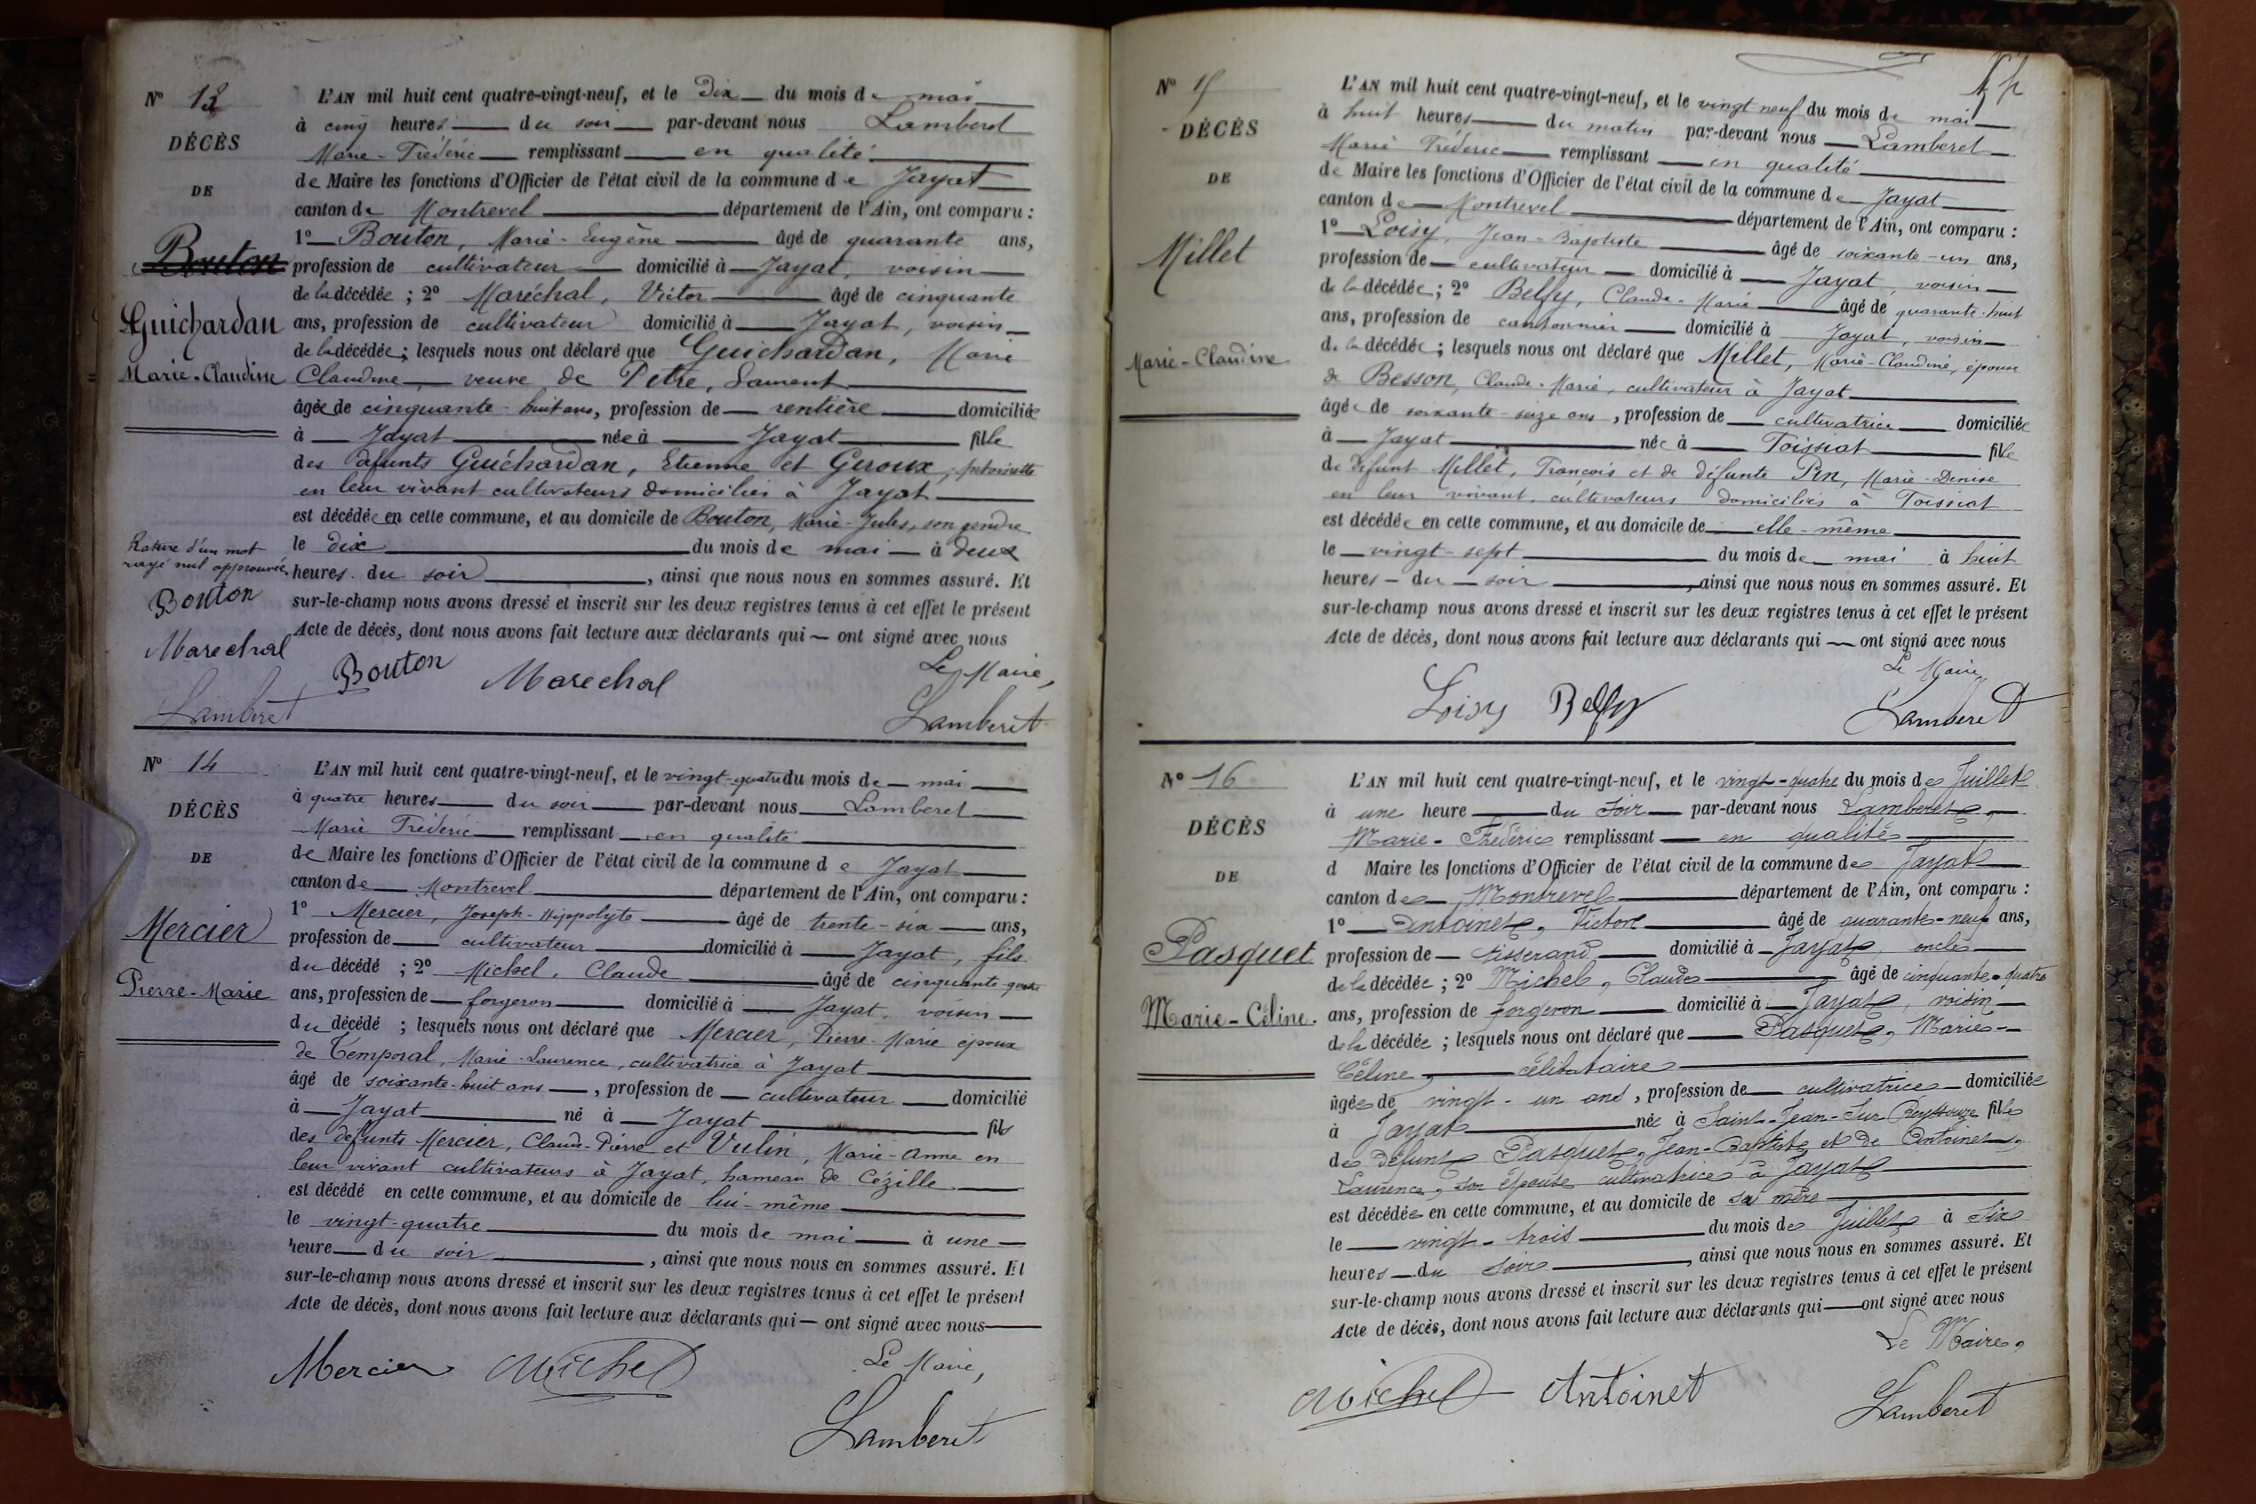 Nº 13
DÉCÈS
DE
Bouton
Guichardan
Marie-Claudine
Rature d'un mot
rayé nul approuvée
Bouton
Marechal
Lamberet
L'AN mil huit cent quatre-vingt-neuf, et le dix du mois de mai
à cinq heures du soir par-devant nous Lamberet
Marie-Fréderic remplissant en qualité
de Maire les fonctions d'Officier de l'état civil de la commune de Jayat
canton de Montrevel département de l'Ain, ont comparu :
1º Bouton, Marie-Eugène âgé de quarante ans,
profession de cultivateur domicilié à Jayat, voisin
de la décédée ; 2º Maréchal, Victor âgé de cinquante
ans, profession de cultivateur domicilié à Jayat, voisin
de la décédée ; lesquels nous ont déclaré que Guichardan, Marie
Claudine, veuve de Petre, Laurent
âgée de cinquante-huit ans, profession de rentière domiciliée
à Jayat née à Jayat fille
des défunts Guichardan, Etienne et Geroux,
en leur vivant cultivateurs domiciliés à Jayat
est décédée en cette commune, et au domicile de Bouton, Marie-Jules, son gendre
le dix du mois de mai à deux
heures du soir, ainsi que nous nous en sommes assuré. Et
sur-le-champ nous avons dressé et inscrit sur les deux registres tenus à cet effet le présent
Acte de décès, dont nous avons fait lecture aux déclarants qui ont signé avec nous
Le Maire,
Bouton Marechal Lamberet
Nº 14
DÉCÈS
DE
Mercier
Pierre-Marie
L'AN mil huit cent quatre-vingt-neuf, et le vingt-quatre du mois de mai
à quatre heures du soir par-devant nous Lamberet
Marie Fréderic remplissant en qualité
de Maire les fonctions d'Officier de l'état civil de la commune de Jayat
canton de Montrevel département de l'Ain, ont comparu :
1º Mercier, Joseph-Hippolyte âgé de trente-six ans,
profession de cultivateur domicilié à Jayat, fils
du décédé ; 2º Michel, Claude âgé de cinquante-quatre
ans, profession de forgeron domicilié à Jayat, voisin
du décédé ; lesquels nous ont déclaré que Mercier, Pierre-Marie époux
de Temporal, Marie-Laurence, cultivatrice à Jayat
âgé de soixante-huit ans, profession de cultivateur domicilié
à Jayat né à Jayat fils
des défunts Mercier, Claude-Pierre et Vulin, Marie-Anne en
leur vivant cultivateurs à Jayat, hameau de Cézille
est décédé en cette commune, et au domicile de lui-même
le vingt-quatre du mois de mai à une
heure du soir, ainsi que nous nous en sommes assuré. Et
sur-le-champ nous avons dressé et inscrit sur les deux registres tenus à cet effet le présent
Acte de décès, dont nous avons fait lecture aux déclarants qui ont signé avec nous
Le Maire,
Mercier Michel Lamberet
Nº 15
DÉCÈS
DE
Millet
Marie-Claudine
L'AN mil huit cent quatre-vingt-neuf, et le vingt neuf du mois de mai
à huit heures du matin par-devant nous Lamberet
Marie Fréderic remplissant en qualité
de Maire les fonctions d'Officier de l'état civil de la commune de Jayat
canton de Montrevel département de l'Ain, ont comparu :
1º Loisy, Jean-Baptiste âgé de soixante-un ans,
profession de cultivateur domicilié à Jayat, voisin
de la décédée ; 2º Belfy, Claude-Marie âgé de quarante-huit
ans, profession de cantonnier domicilié à Jayat, voisin
de la décédée ; lesquels nous ont déclaré que Millet, Marie-Claudine, épouse
de Besson, Claude-Marie, cultivateur à Jayat
âgée de soixante-seize ans, profession de cultivatrice domiciliée
à Jayat née à Foissiat fille
de défunt Millet, François et de défunte Pin, Marie-Denise
en leur vivant cultivateurs domiciliés à Foissiat
est décédée en cette commune, et au domicile de elle-même
le vingt-sept du mois de mai à huit
heures du soir, ainsi que nous nous en sommes assuré. Et
sur-le-champ nous avons dressé et inscrit sur les deux registres tenus à cet effet le présent
Acte de décès, dont nous avons fait lecture aux déclarants qui ont signé avec nous
Le Maire
Loisy Belfy Lamberet
Nº 16
DÉCÈS
DE
Pasquet
Marie-Céline.
L'AN mil huit cent quatre-vingt-neuf, et le vingt-quatre du mois de Juillet
à une heure du soir par-devant nous Lamberet,
Marie-Fréderic remplissant en qualité
d Maire les fonctions d'Officier de l'état civil de la commune de Jayat
canton de Montrevel département de l'Ain, ont comparu :
1º Antoinet, Victor âgé de quarante-neuf ans,
profession de tisserand domicilié à Jayat, oncle
de la décédée ; 2º Michel, Claude âgé de cinquante-quatre
ans, profession de forgeron domicilié à Jayat, voisin
de la décédée ; lesquels nous ont déclaré que Pasquet, Marie-
Céline, célibataire
âgée de vingt-un ans, profession de cultivatrice domiciliée
à Jayat née à Saint-Jean-Sur-Reyssouze fille
de défunt Pasquet, Jean-Baptiste et de Antoinet,
Laurence, son épouse cultivatrice à Jayat
est décédée en cette commune, et au domicile de sa mère
le vingt-trois du mois de Juillet à six
heures du soir, ainsi que nous nous en sommes assuré. Et
sur-le-champ nous avons dressé et inscrit sur les deux registres tenus à cet effet le présent
Acte de décès, dont nous avons fait lecture aux déclarants qui ont signé avec nous
Le Maire,
Michel Antoinet Lamberet